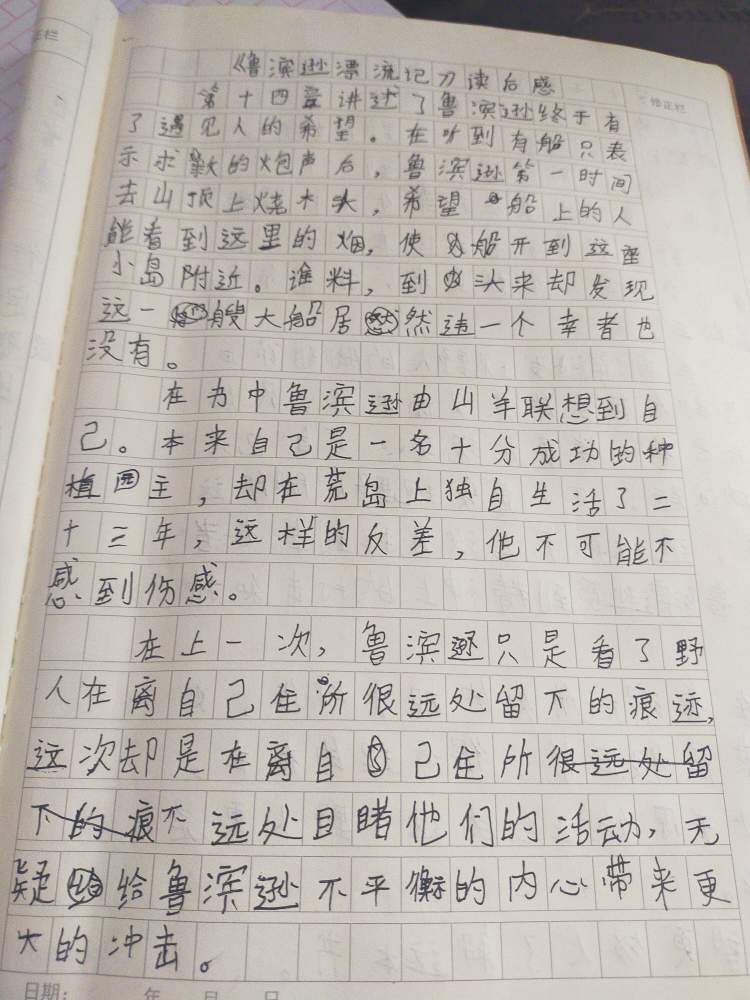 《鲁滨逊漂流记》读后感
第十四章讲述了鲁滨逊终于有
了遇见人的希望。在听到有船只表
示求救的炮声后，鲁滨逊第一时间
去山顶上烧木头，希望船上的人
能看到这里的烟，使船开到这座
小岛附近。谁料，到头来却发现
这一艘大船居然连一个幸者也
没有。
在书中鲁滨逊由山羊联想到自
己。本来自己是一名十分成功的种
植园主，却在荒岛上独自生活了二
十三年，这样的反差，他不可能不
感到伤感。
在上一次，鲁滨逊只是看了野
人在离自己住所很远处留下的痕迹，
这次却是在离自己住所很远处留
下的痕不远处目睹他们的活动，无
疑给鲁滨逊不平衡的内心带来更
大的冲击。
日期： 年 月 日